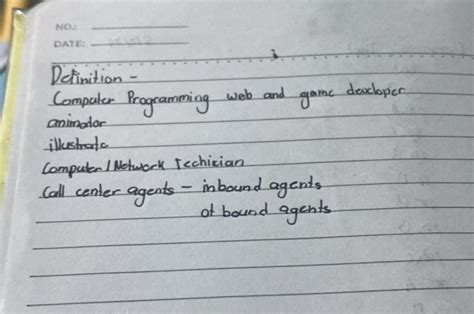 NO.:
DATE:
Definition -
Computer Programming web and game developer
animator
illustrate
Computer / Network Techician
Call center agents - inbound agents
of bound agents